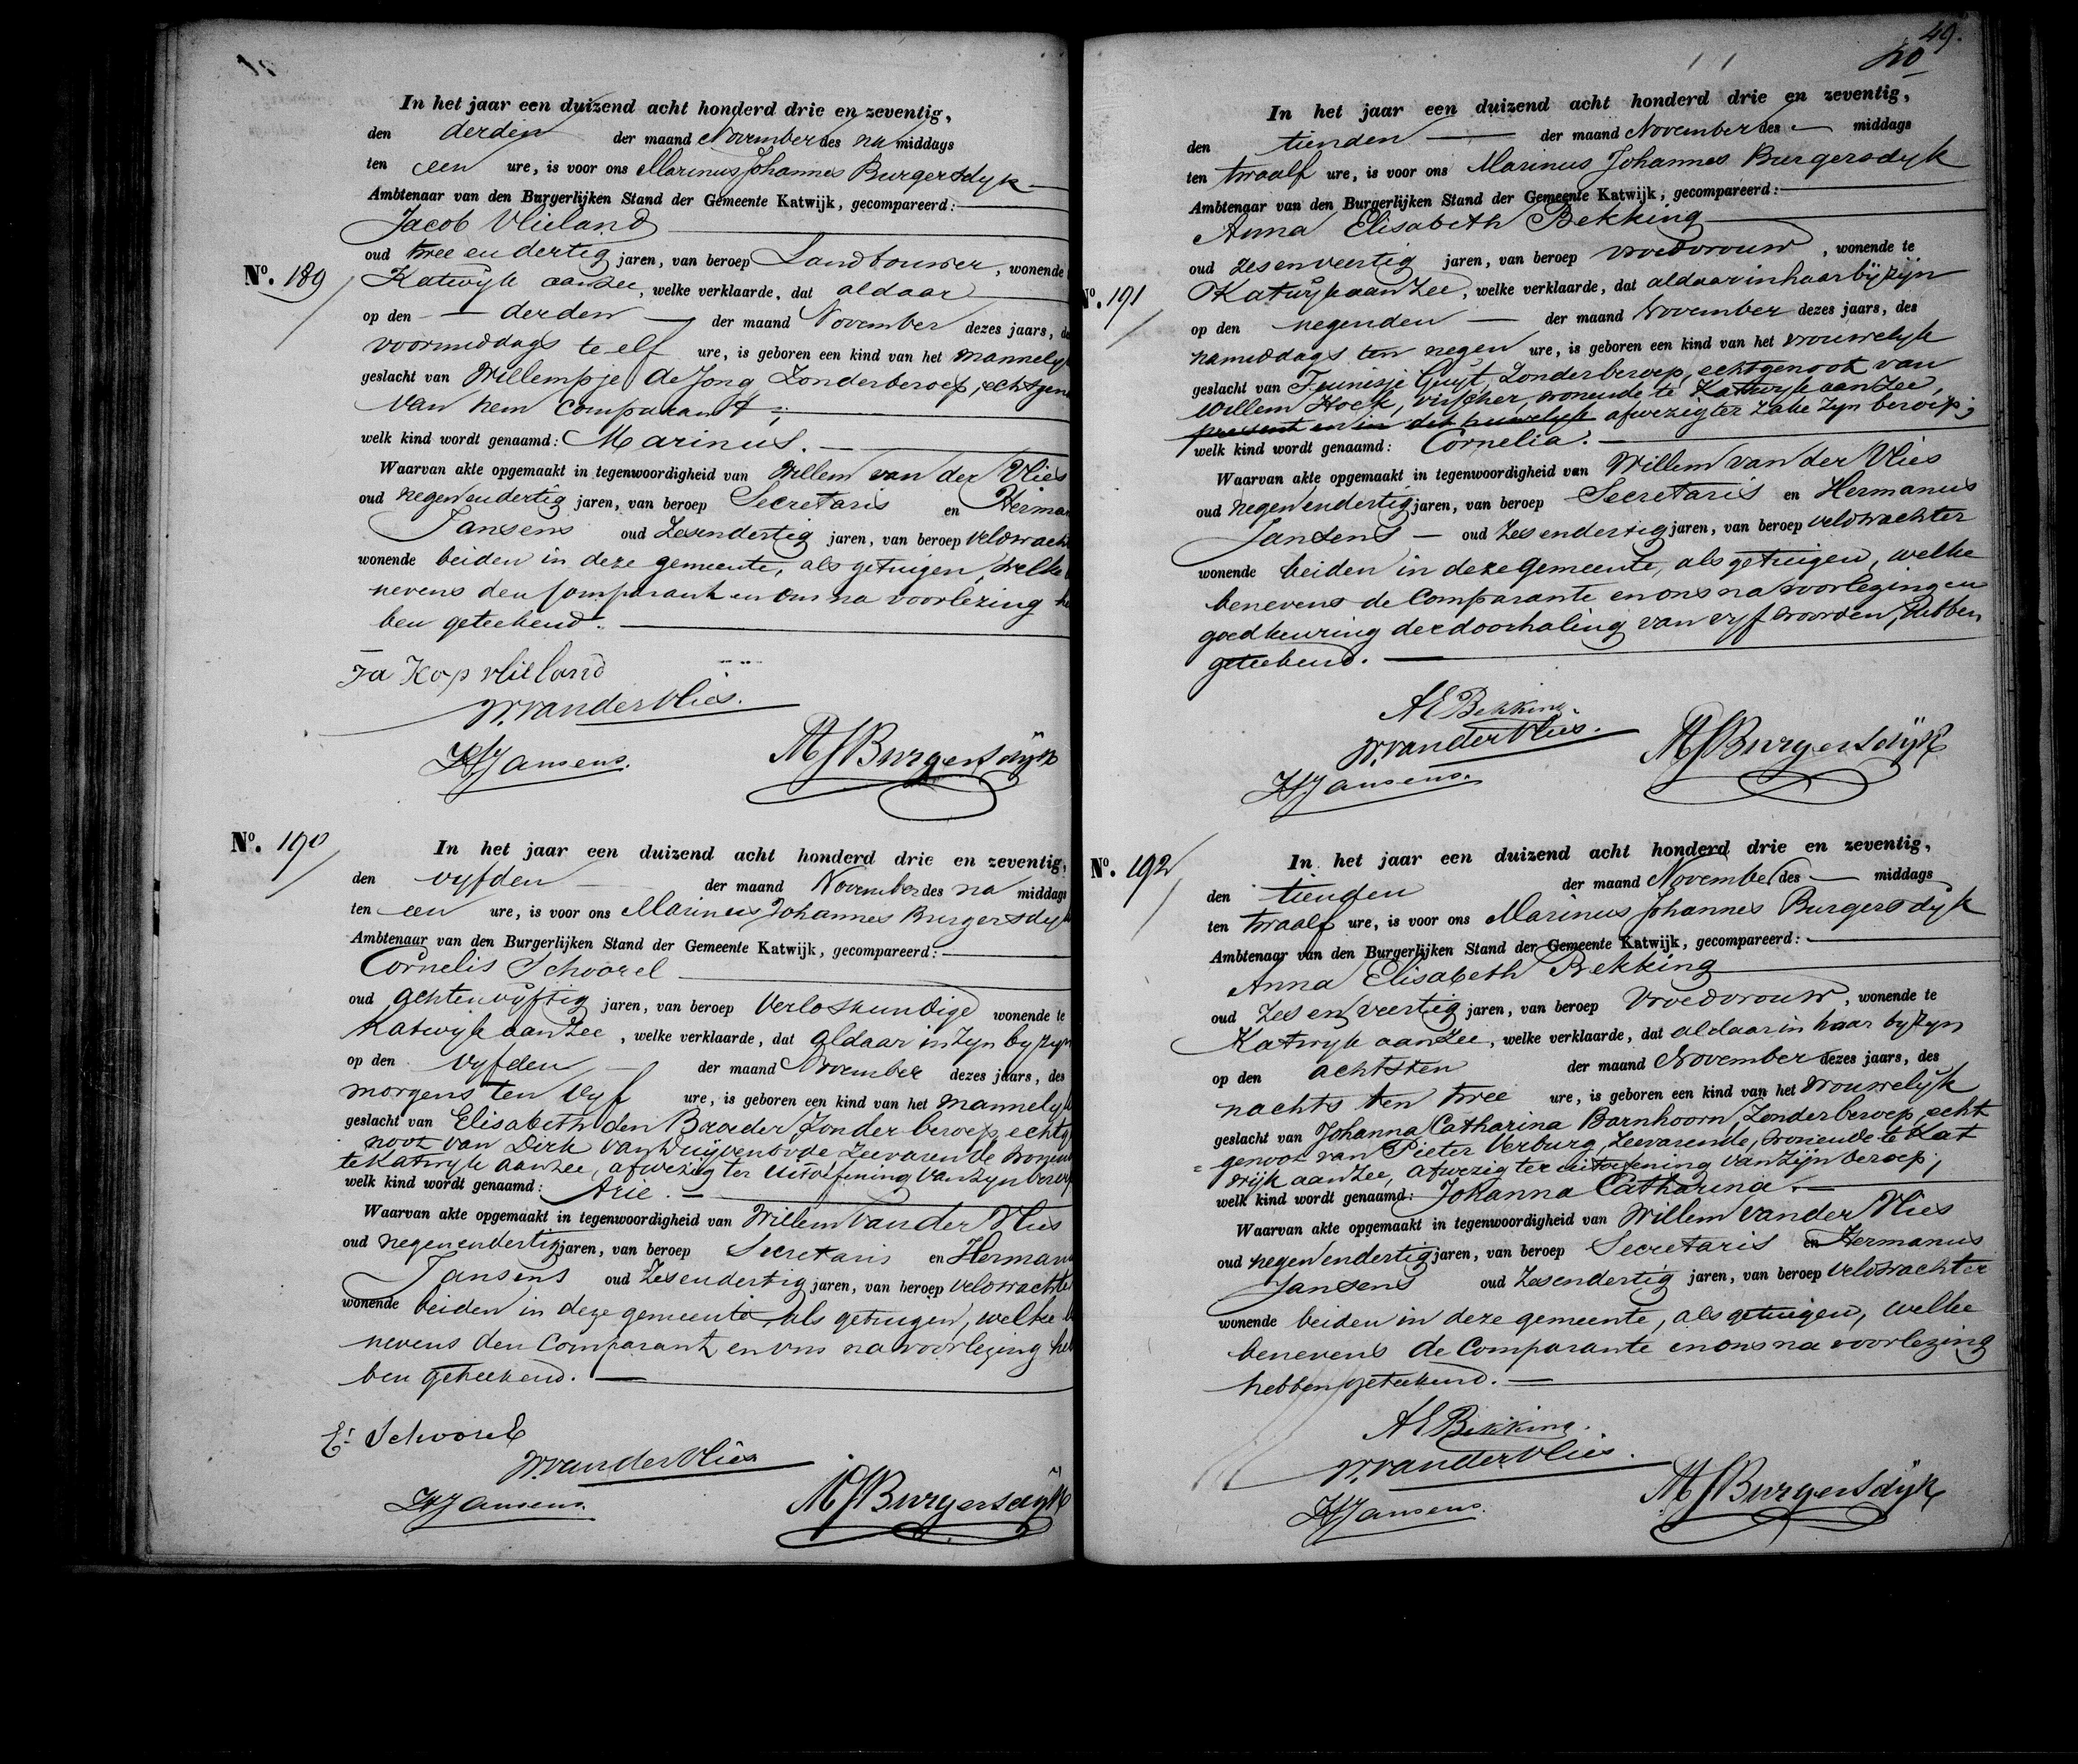 In het jaar een duizend acht honderd drie en zeventig,
den derden der maand November des na middags
ten een ure, is voor ons Marinus Johannes Burgersdyk
Ambtenaar van den Burgerlijken Stand der Gemeente Katwijk, gecompareerd:
Jacob Vlieland
oud twee en dertig jaren, van beroep Landbouwer, wonende
No. 189
Katwijk aan Zee, welke verklaarde, dat aldaar
op den derden der maand November dezes jaars, de
voormiddags te elf ure, is geboren een kind van het mannelyk
geslacht van Willempje de Jong Zonder beroep, echtgen
van hem Comparant;
welk kind wordt genaamd: Marinus.
Waarvan akte opgemaakt in tegenwoordigheid van Willem van der Vlies
oud negenendertig jaren, van beroep Secretaris en Herma
Jansens oud Zesendertig jaren, van beroep veldwach
wonende beiden in deze gemeente, als getuigen, welke
nevens den Comparant en ons na voorlezing he
ben geteekend.
Ja Kop vlieland
W. van der Vlies.
HJansens.
MJBurgersdijk
No. 190
In het jaar een duizend acht honderd drie en zeventig,
den vyfden der maand November des na middags
ten een ure, is voor ons Marinus Johannes Burgersdyk
Ambtenaar van den Burgerlijken Stand der Gemeente Katwijk, gecompareerd:
Cornelis Schoorel
oud achtenvijftig jaren, van beroep Verloskundige wonende te
Katwijk aan Zee, welke verklaarde, dat aldaar in Zyn byzyn
op den vyfden der maand November dezes jaars, des
morgens ten vyf ure, is geboren een kind van het mannelyk
geslacht van Elisabeth den Broeder Zonder beroep, echtg
noot van Dirk van Duijvenbode Zeevarende wonen
te Katwyk aan Zee, afwezig ter uitoefening van zyn beroep
welk kind wordt genaamd: Arie.
Waarvan akte opgemaakt in tegenwoordigheid van Willem van der Vlies
oud negenendertig jaren, van beroep Secretaris en Herman
Jansens oud Zesendertig jaren, van beroep veldwachte
wonende beiden in deze gemeente als getuigen, welke b
nevens den Comparant en ons na voorlezing heb
ben geteekend.
Schoorel
W. van der Vlies
HJansens.
MJBurgersdijk
49.
50
In het jaar een duizend acht honderd drie en zeventig,
den tienden der maand November des middags
ten twaalf ure, is voor ons Marinus Johannes Burgersdyk
Ambtenaar van den Burgerlijken Stand der Gemeente Katwijk, gecompareerd:
Anna Elisabeth Bekking
oud Zesenveertig jaren, van beroep vroedvrouw, wonende te
No. 191
Katwijk aan Zee, welke verklaarde, dat aldaar in haar bijzijn
op den negenden der maand November dezes jaars, des
namiddags ten negen ure, is geboren een kind van het vrouwelyk
geslacht van Teunisje Guyt, Zonder beroep, echtgenoot van
Willem Hoek, visscher, wonende te Katwyk aan Zee,
present en in dit huwelyk afwezig ter zake zyn beroep;
welk kind wordt genaamd: Cornelia.
Waarvan akte opgemaakt in tegenwoordigheid van Willem van der Vlies
oud negenendertig jaren, van beroep Secretaris en Hermanus
Jansens oud Zesendertig jaren, van beroep veldwachter
wonende beiden in deze gemeente, als getuigen, welke
benevens de Comparante en ons na voorlezing en
goedkeuring der doorhaling van vyf woorden, hebben
geteekend.
AE Bekking.
W. van der Vlies.
HJansens.
MJBurgersdijk
No. 192
In het jaar een duizend acht honderd drie en zeventig,
den tienden der maand November des middags
ten twaalf ure, is voor ons Marinus Johannes Burgersdyk
Ambtenaar van den Burgerlijken Stand der Gemeente Katwijk, gecompareerd:
Anna Elisabeth Bekking
oud Zes en veertig jaren, van beroep Vroedvrouw, wonende te
Katwyk aan Zee, welke verklaarde, dat aldaar in haar byzyn
op den achtsten der maand November dezes jaars, des
nachts ten twee ure, is geboren een kind van het vrouwelijk
geslacht van Johanna Catharina Barnhoorn, Zonder beroep, echt
genoot van Pieter Verburg, Zeevarende, wonende te Kat
wijk aan Zee, afwezig ter uitoefening van Zijn beroep;
welk kind wordt genaamd: Johanna Catharina.
Waarvan akte opgemaakt in tegenwoordigheid van Willem van der Vlies
oud negenendertig jaren, van beroep Secretaris en Hermanus
Jansens oud Zesendertig jaren, van beroep veldwachter
wonende beiden in deze gemeente, als getuigen, welke
benevens de Comparante en ons na voorlezing
hebben geteekend.
AE Bekking.
W. van der Vlies.
HJansens.
MJBurgersdijk